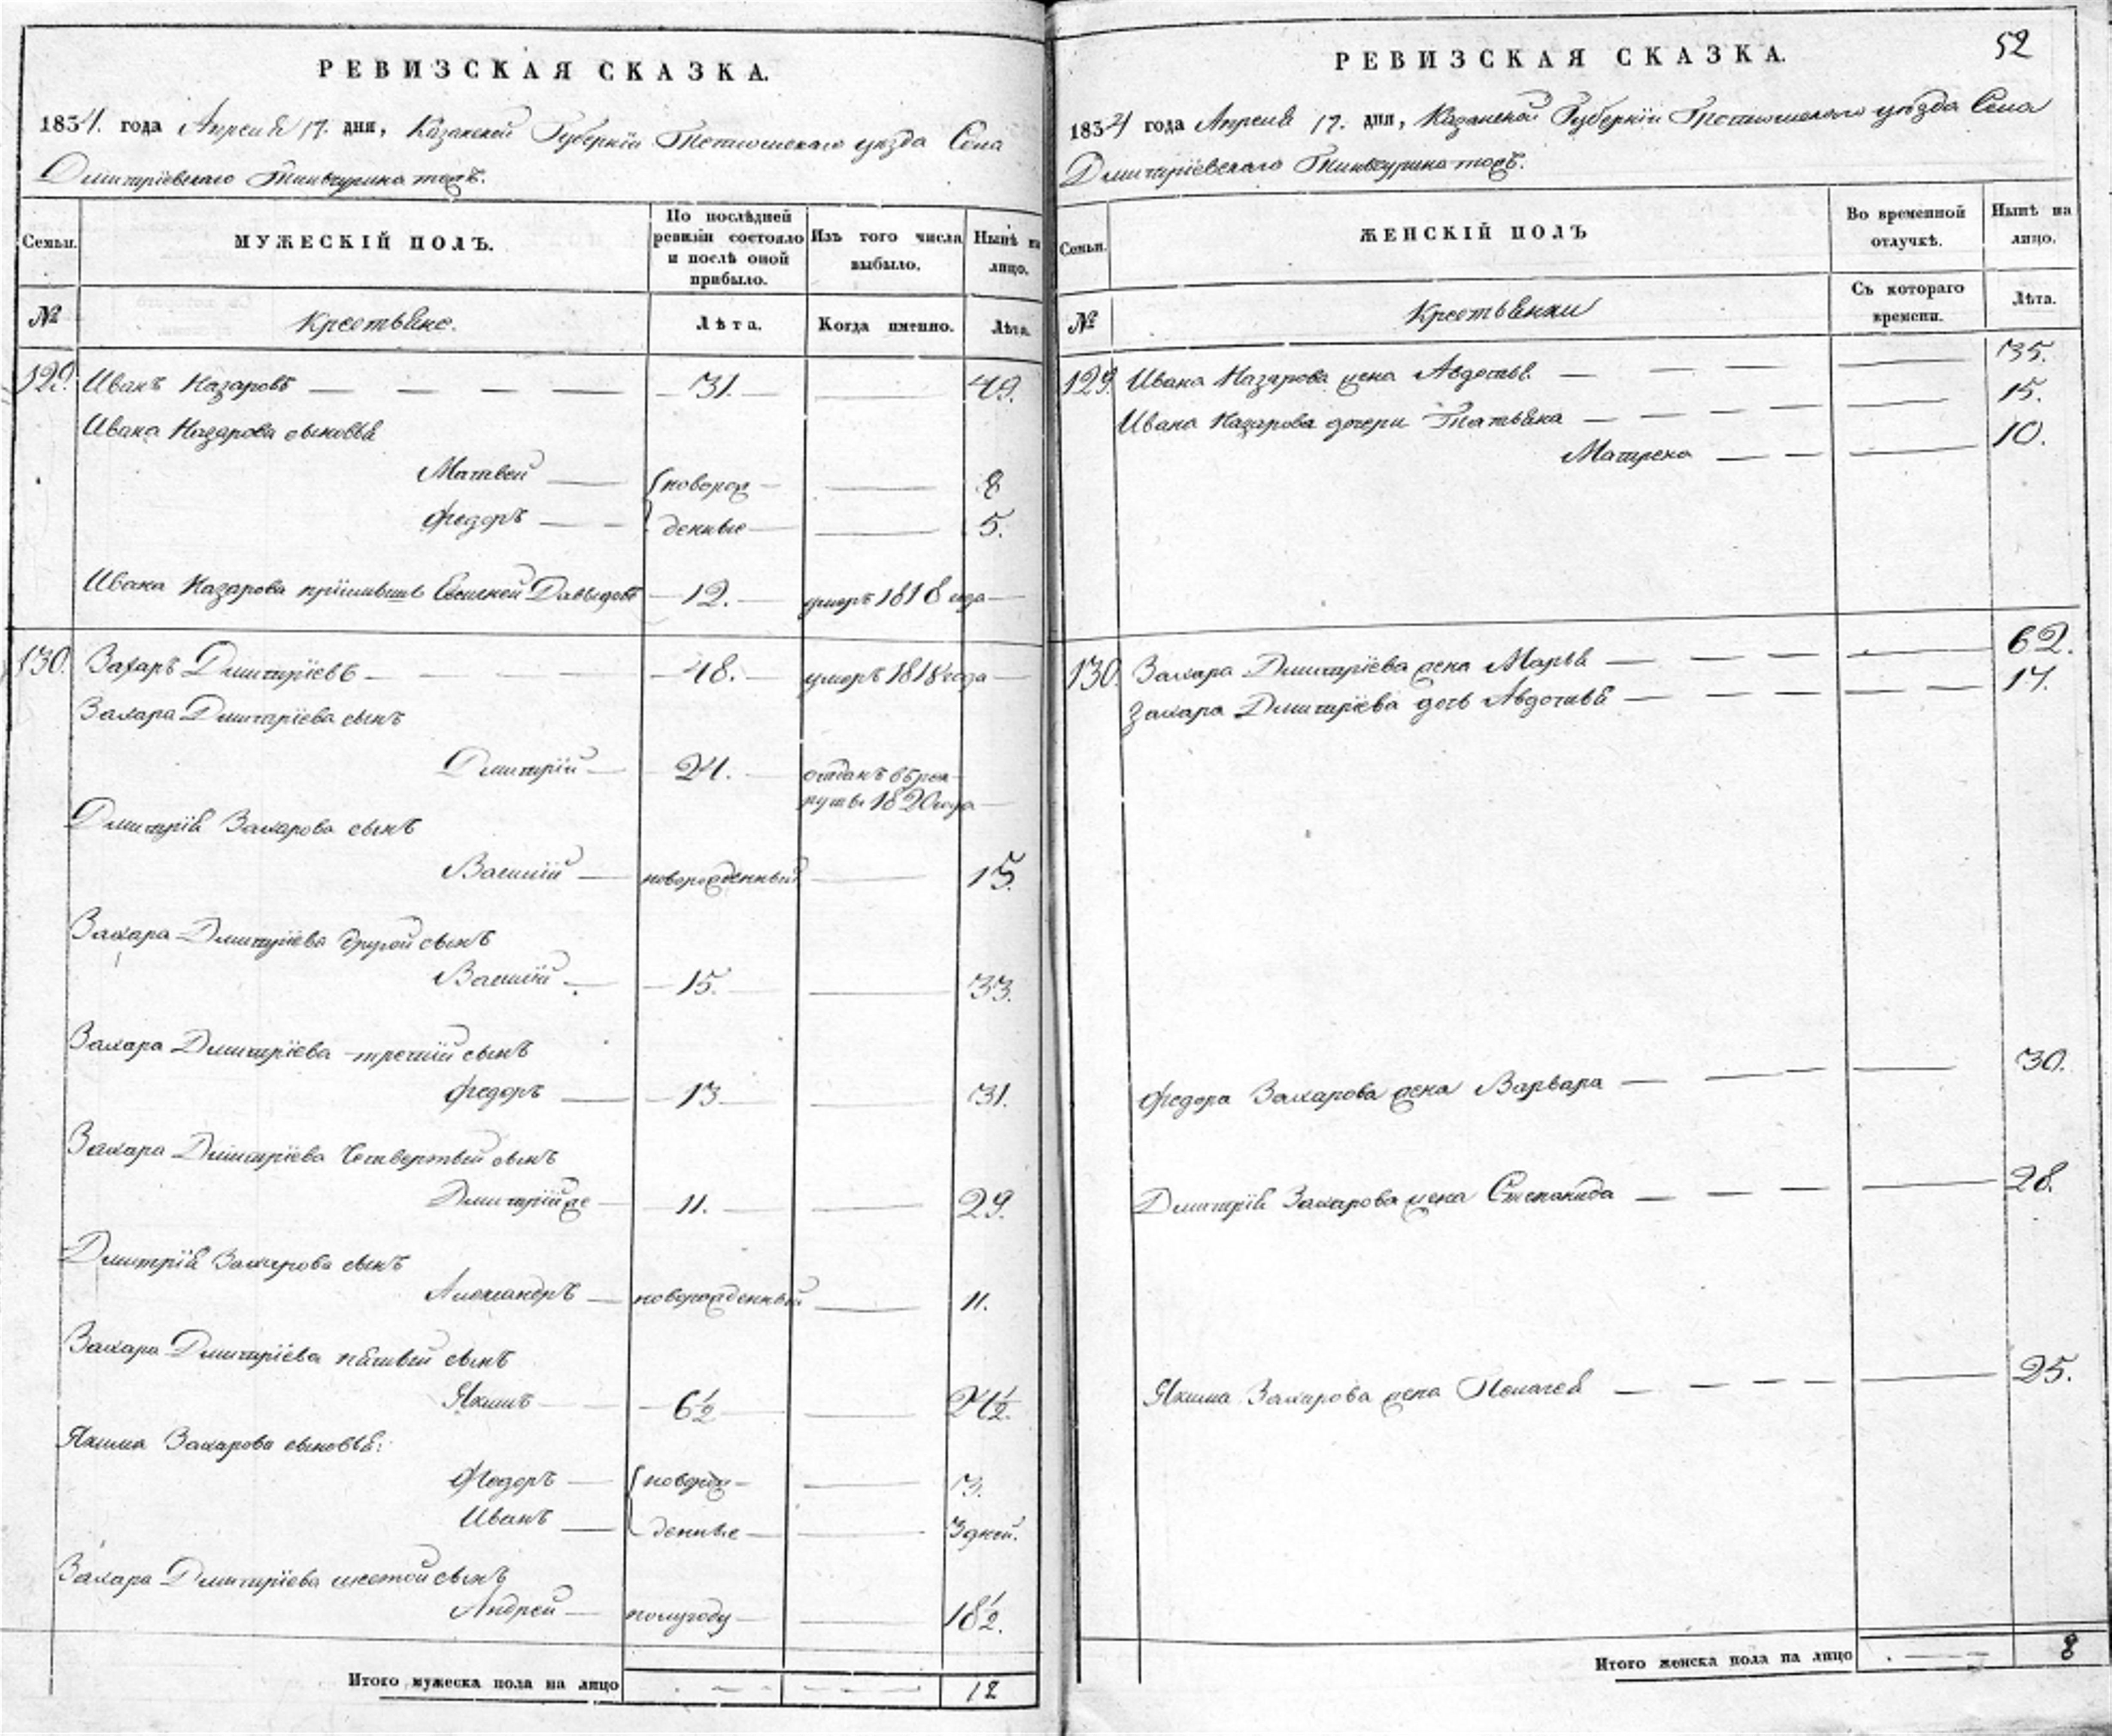 РЕВИЗСКАЯ СКАЗКА.
1834. года Апреля 17. дня, Казанской Губернiи Тетюшскаго уѣзда Села
Дмитрiевскаго
Семьи.
МУЖЕСКIЙ ПОЛЪ.
По послѣдней ревизiи состояло и послѣ оной прибыло.
Изъ того числа выбыло.
Нынѣ на лицо.
№
Крестьяне.
Лѣта.
Когда именно.
Лѣта.
129. Иванъ Назаровъ 31. 49.
Ивана Назарова сыновья
Матвей новорож- 8
Федоръ денные 5.
Ивана Назарова Давыдовъ 12. умеръ 1818 года
130. Захаръ Дмитрiевъ 48. умеръ 1818 года
Захара Дмитрiева сынъ
Дмитрiй 24. отданъ въ рек-
руты 1820 года
Дмитрiя Захарова сынъ
Василiй новорожденный 15.
Захара Дмитрiева другой сынъ
Василiй 15. 33.
Захара Дмитрiева третiй сынъ
Федоръ 13 31.
Захара Дмитрiева четвертый сынъ
Дмитрiй же 11. 29.
Дмитрiя Захарова сынъ
Александръ новорожденный 11.
Захара Дмитрiева пятый сынъ
Якимъ 6½ 24½.
Якима Захарова сыновья:
Федоръ новорож- 3.
Иванъ денные 3 дней.
Захара Дмитрiева шестой сынъ
Андрей полугоду 18½.
Итого мужеска пола на лицо 12
52
РЕВИЗСКАЯ СКАЗКА.
1834 года Апреля 17. дня, Казанской Губернiи Тетюшскаго уѣзда Села
Дмитрiевскаго
Семьи.
ЖЕНСКIЙ ПОЛЪ
Во временной отлучкѣ.
Нынѣ на лицо.
№
Крестьянки
Съ котораго времени.
Лѣта.
129. Ивана Назарова жена Авдотья 35.
Ивана Назарова дочери Татьяна 15.
Матрена 10.
130. Захара Дмитрiева жена Марья 62.
Захара Дмитрiева дочь Авдотья 17.
Федора Захарова жена Варвара 30.
Дмитрiя Захарова жена Степанида 28.
Якима Захарова жена Пелагея 25.
Итого женска пола на лицо 8